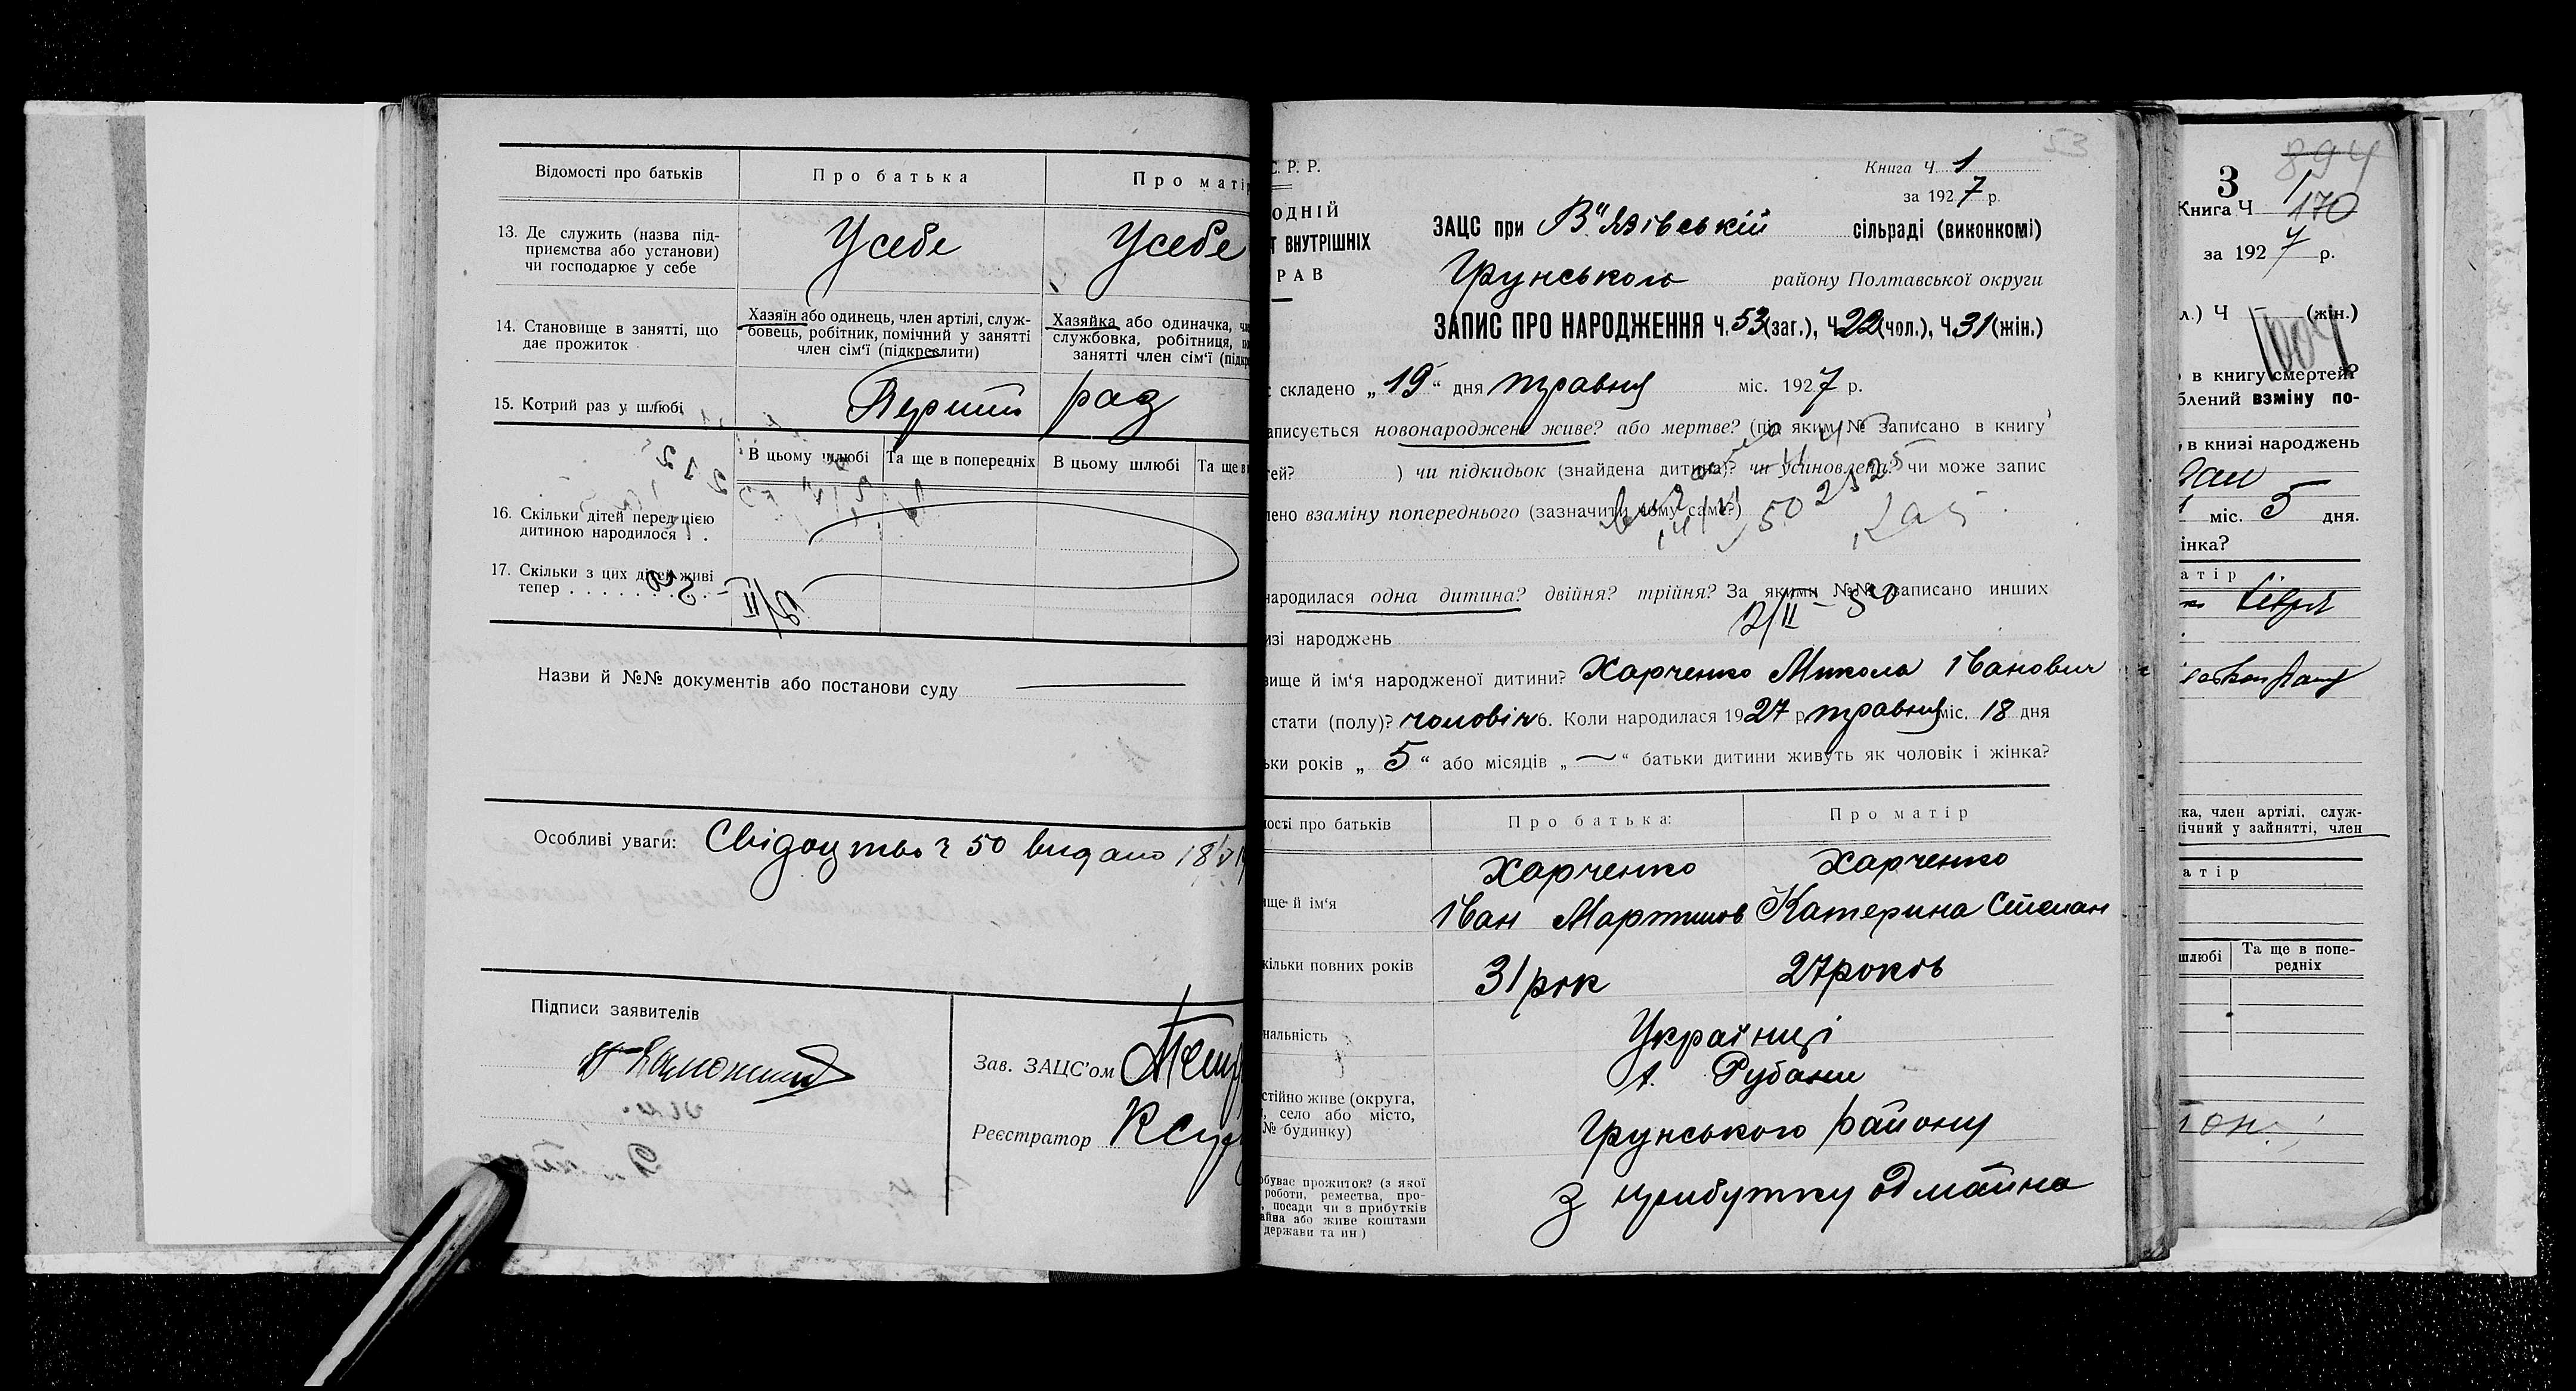 Відомості про батьків
Про батька
Про матір
13. Де служить (назва під-
приємства або установи)
чи господарює у себе
У себе
У себе
14. Становище в занятті, що
дає прожиток
Хазяїн або одинець, член артілі, служ-
бовець, робітник, помічний у занятті
член сім'ї (підкреслити)
Хазяйка або одиначка,
службовка, робітниця,
занятті член сім'ї
15. Котрий раз у шлюбі
Перший раз
В цьому шлюбі
Та ще в попередніх
В цьому шлюбі
Та ще в
16. Скільки дітей перед цією
дитиною народилося . .
17. Скільки з цих дітей живі
тепер . . . . . . . .
Назви й №№ документів або постанови суду
Особливі уваги: Свідоцтво ч 50 видано
Підписи заявителів
Зав. ЗАЦС'ом
Реєстратор
53
С. Р. Р.
Книга Ч. 1
за 1927 р.
ОДНІЙ
Т ВНУТРІШНІХ
РАВ
ЗАЦС при В"язівській сільраді (виконкомі)
Грунського району Полтавської округи
ЗАПИС ПРО НАРОДЖЕННЯ Ч. 53 (заг.), Ч 22 (чол.), Ч. 31 (жін.)
складено „19“ дня травня міс. 1927 р.
аписується новонароджене живе? або мертве? (під яким № записано в книгу
тей? ) чи підкидьок (знайдена дитина)? чи усиновлена? чи може запис
лено взаміну попереднього (зазначити чому саме?)
народилася одна дитина? двійня? трійня? За якими №№ записано инших
12/II – 50
изі народжень
вище й ім'я народженої дитини? Харченко Микола Іванович
стати (полу)? чоловіч 6. Коли народилася 1927 р травня міс. 18 дня
ьки років „5“ або місяців „—“ батьки дитини живуть як чоловік і жінка?
мості про батьків
Про батька:
Про матір
ище й ім'я
Харченко
Іван Мартинов
Харченко
Катерина Степан
кільки повних років
31 рік
27 років
нальність
Українці
стійно живе (округа,
село або місто,
№ будинку)
х. Рубани
Грунського району
обуває прожиток? (з якої
роботи, ремества, про-
посади чи з прибутків
айна або живе коштами
держави та ин)
З прибутку од майна
894
3
Книга Ч 1
170
за 1927 р.
л.) Ч (жін.)
в книгу смертей?
блений взміну по-
в книзі народжень
міс. 5 дня.
інка?
атір
ка, член артілі, служ-
ічний у зайнятті, член
атір
шлюбі
Та ще в попе-
редніх